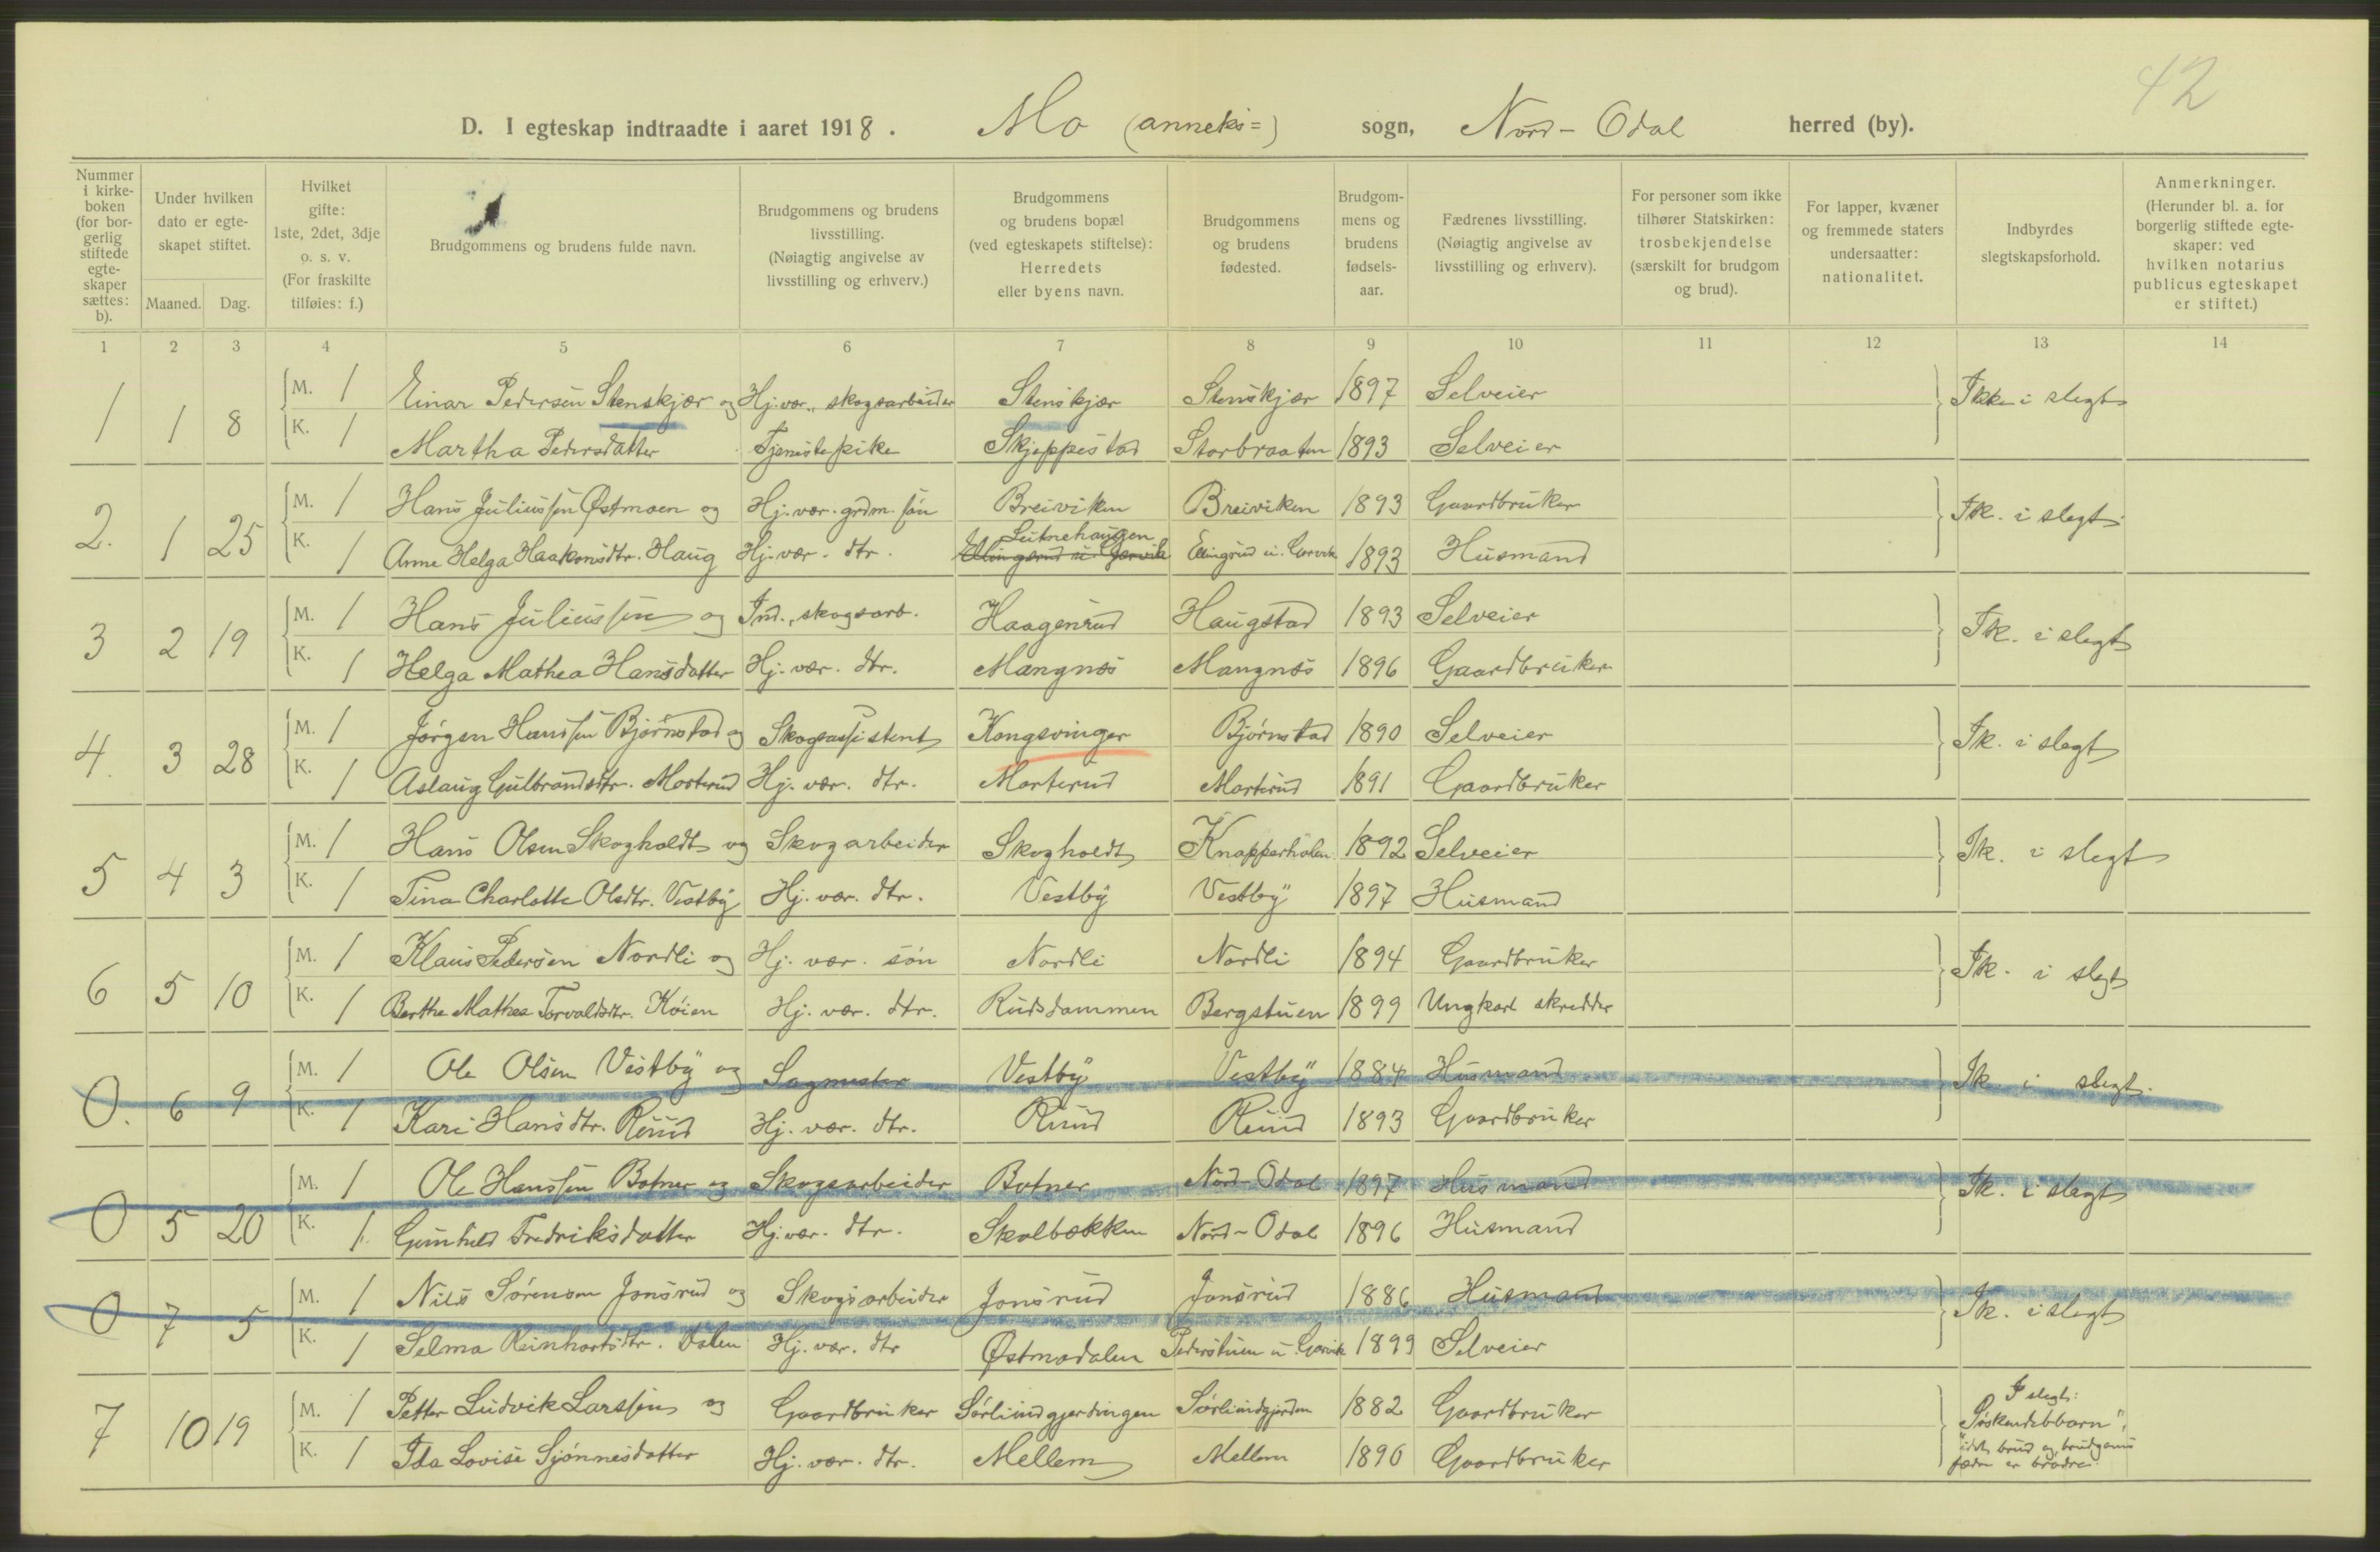 42
D. I egteskap indtraadte i aaret 1918. Mo (anneks=) sogn, Nord-Odal herred (by).
Nummer i kirke-boken (for bor-gerlig stiftede egte-skaper sættes: b).
Under hvilken dato er egte-skapet stiftet.
Maaned. Dag.
Hvilket gifte: 1ste, 2det, 3dje o. s. v. (For fraskilte tilføies: f.)
Brudgommens og brudens fulde navn.
Brudgommens og brudens livsstilling. (Nøiagtig angivelse av livsstilling og erhverv.)
Brudgommens og brudens bopæl (ved egteskapets stiftelse): Herredets eller byens navn.
Brudgommens og brudens fødested.
Brudgom-mens og brudens fødsels-aar.
Fædrenes livsstilling. (Nøiagtig angivelse av livsstilling og erhverv).
For personer som ikke tilhører Statskirken: trosbekjendelse (særskilt for brudgom og brud).
For lapper, kvæner og fremmede staters undersaatter: nationalitet.
Indbyrdes slegtskapsforhold.
Anmerkninger. (Herunder bl. a. for borgerlig stiftede egte-skaper: ved hvilken notarius publicus egteskapet er stiftet.)
1 2 3 4 5 6 7 8 9 10 11 12 13 14
1 1 8 M. 1 Einar Pedersen Stenskjær og Hj. vær., skogsarbeider Stenskjær Stenskjær 1897 Selveier Ikke i slegt
K. 1 Martha Pedersdatter Tjenestepike Skjeppestad Storbraaten 1893 Selveier
2. 1 25 M. 1 Hans Juliussen Østmoen og Hj. vær. grdm. søn Breiviken Breiviken 1893 Gaardbruker Ik. i slegt
K. 1 Anne Helga Haakonsdtr. Haug Hj. vær. dtr. Ellingsrud u. Garvik Ellingsrud u. Garvik 1893 Husmand
3 2 19 M. 1 Hans Juliussen og Ind., skogsarb. Haagenrud Haugstad 1893 Selveier Ik. i slegt
K. 1 Helga Mathea Hansdatter Hj. vær. dtr. Mangnæs Mangnæs 1896 Gaardbruker
4. 3 28 M. 1 Jørgen Hanssen Bjørnstad og Skogsassistent Kongsvinger Bjørnstad 1890 Selveier Ik. i slegt
K. 1 Aslaug Gulbrandsdtr. Morterud Hj. vær. dtr. Morterud Morterud 1891 Gaardbruker
5 4 3 M. 1 Hans Olsen Skogholdt og Skogarbeider Skogholdt Knapperholen 1892 Selveier Ik. i slegt
K. 1 Tina Charlotte Olsdtr. Vestby Hj. vær. dtr. Vestby Vestby 1897 Husmand
6 5 10 M. 1 Klaus Pedersen Nordli og Hj. vær. søn Nordli Nordli 1894 Gaardbruker Ik. i slegt
K. 1 Berthe Mathea Torvaldsdtr. Køien Hj. vær. dtr. Rudsdammen Bergstuen 1899 Ungkarl skredder
0. 6 9 M. 1 Ole Olsen Vestby og Sagmester Vestby Vestby 1884 Husmand Ik i slegt.
K. 1 Kari Hansdtr. Ruud Hj. vær. dtr. Ruud Ruud 1893 Gaardbruker
0 5 20 M. 1 Ole Hanssen Botner og Skogsarbeider Botner Nord-Odal 1897 Husmand Ik. i slegt
K. 1 Gunhild Fredriksdatter Hj. vær. dtr. Skolbækken Nord-Odal 1896 Husmand
0 7 5 M. 1 Nils Sørensen Jonsrud og Skogsarbeider Jonsrud Jonsrud 1886 Husmand Ik. i slegt
K. 1 Selma Reinhartsdtr. Dalen Hj. vær. dtr Østmodalen Pederstuen u. Garvik 1899 Selveier
7 10 19 M. 1 Petter Ludvik Larssen og Gaardbruker Sørliundgjerdingen 1882 Gaardbruker I slegt: Søskendebarn,
K. 1 Ida Lovise Sjønnesdatter Hj. vær. dtr. Mellem Mellem 1890 Gaardbruker brud og brudgoms fædre er brødre.